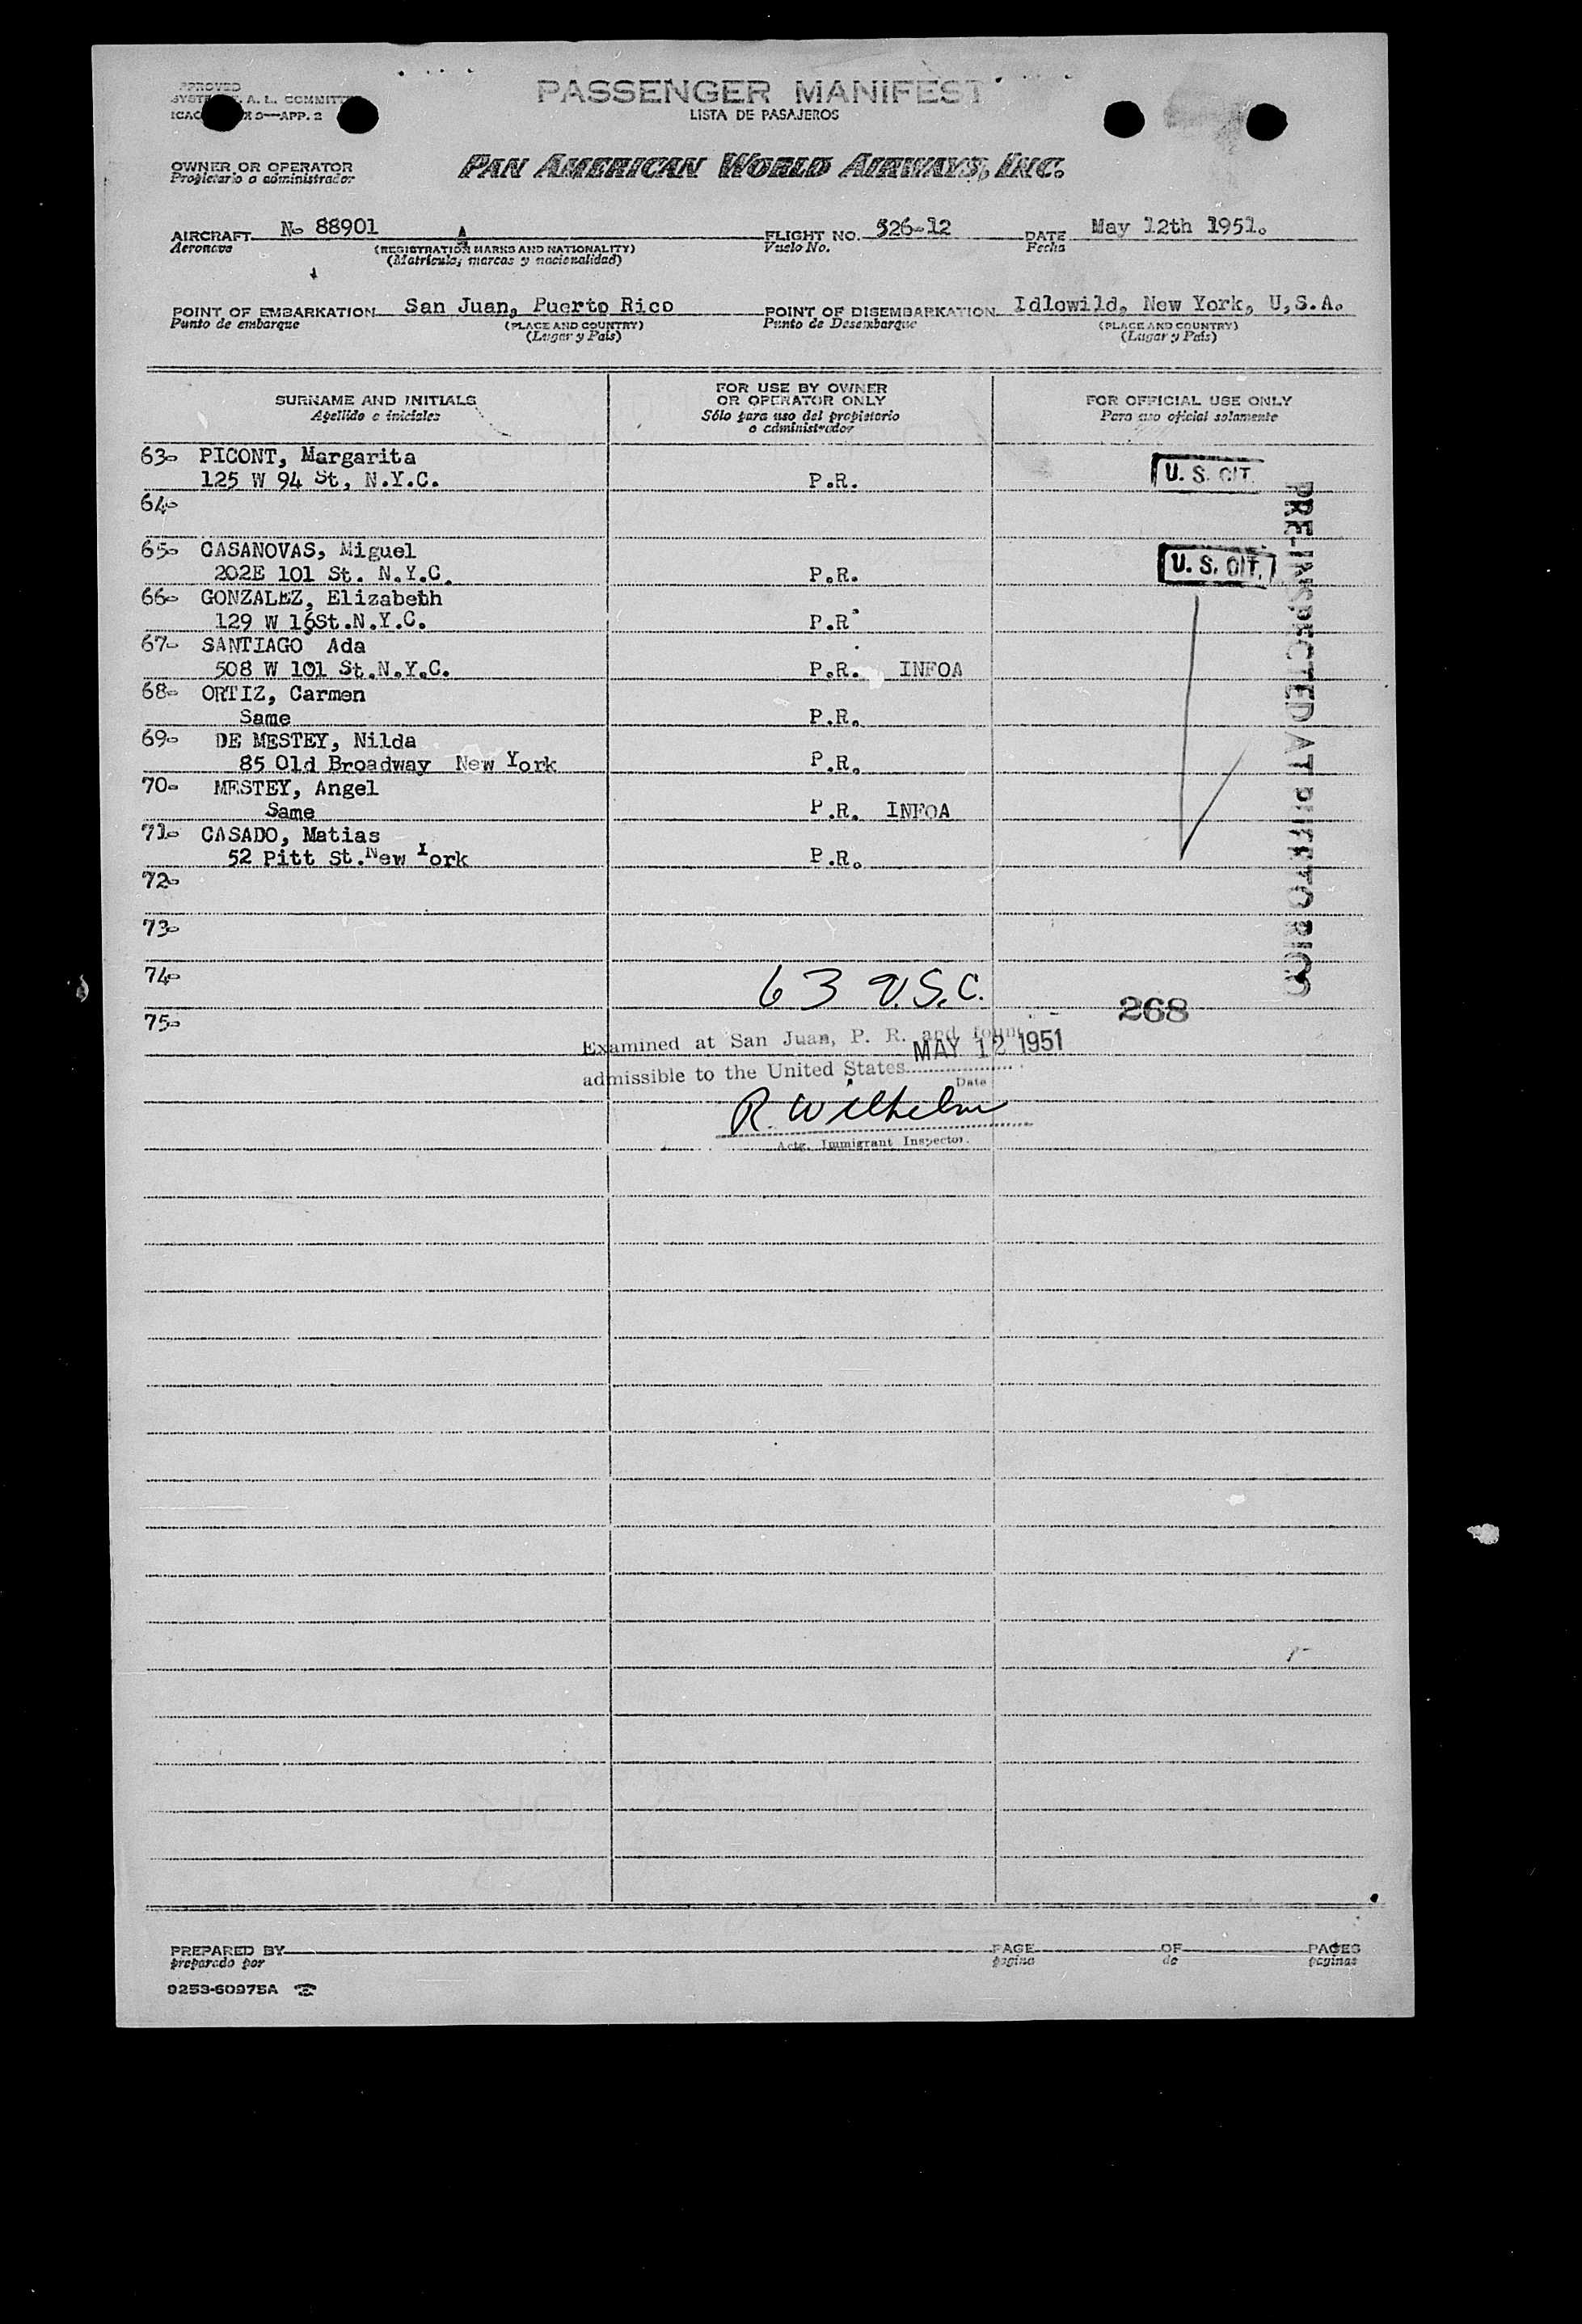 PPROVED
SYSTE A. L. COMMITT
ICAO 9—APP. 2
PASSENGER MANIFEST
LISTA DE PASAJEROS
OWNER OR OPERATOR
Propietario o administrador
PAN AMERICAN WORLD AIRWAYS, INC.
AIRCRAFT No 88901 FLIGHT NO. 526-12 DATE May 12th 1951.
Aeronave (REGISTRATION MARKS AND NATIONALITY) Vuelo No. Fecha
(Matrícula, marcas y nacionalidad)
POINT OF EMBARKATION San Juan, Puerto Rico POINT OF DISEMBARKATION Idlewild, New York, U,S.A.
Punto de embarque (PLACE AND COUNTRY) Punto de Desembarque (PLACE AND COUNTRY)
(Lugar y País) (Lugar y País)
SURNAME AND INITIALS
Apellido e iniciales
FOR USE BY OWNER
OR OPERATOR ONLY
Sólo para uso del propietario
o administrador
FOR OFFICIAL USE ONLY
Para uso oficial solamente
63- PICONT, Margarita
125 W 94 St, N.Y.C. P.R. U. S. CIT.
64-
65- CASANOVAS, Miguel
202E 101 St. N.Y.C. P.R. U. S. CIT.
66- GONZALEZ, Elizabeth
129 W 16St.N.Y.C. P.R.
67- SANTIAGO Ada
508 W 101 St.N.Y.C. P.R. INFOA
68- ORTIZ, Carmen
Same P.R.
69- DE MESTEY, Nilda
85 Old Broadway New York P.R.
70- MESTEY, Angel
Same P.R. INFOA
71- CASADO, Matias
52 Pitt St.New York P.R.
72-
73-
74-
75-
PRE-INSPECTED AT PUERTO RICO
63 U.S.C.
268
Examined at San Juan, P. R. and found
admissible to the United States MAY 12 1951
Date
R. Wilhelm
Actg. Immigrant Inspector.
PREPARED BY PAGE OF PAGES
preparado por página de páginas
9253-60975A